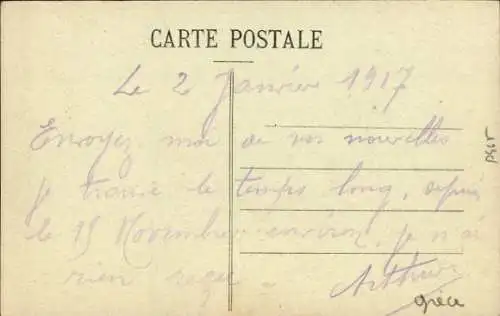 CARTE POSTALE
Le 2 Janvier 1917
Envoyez moi de vos nouvelles
je trouve le temps long, depuis
le 15 Novembre environ, je n'ai
rien reçu -
Arthur
grèce